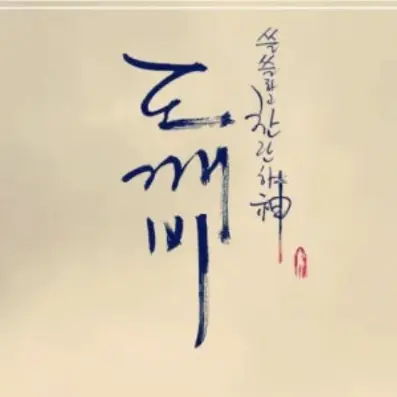 쓸쓸하고 찬란하神
도깨비